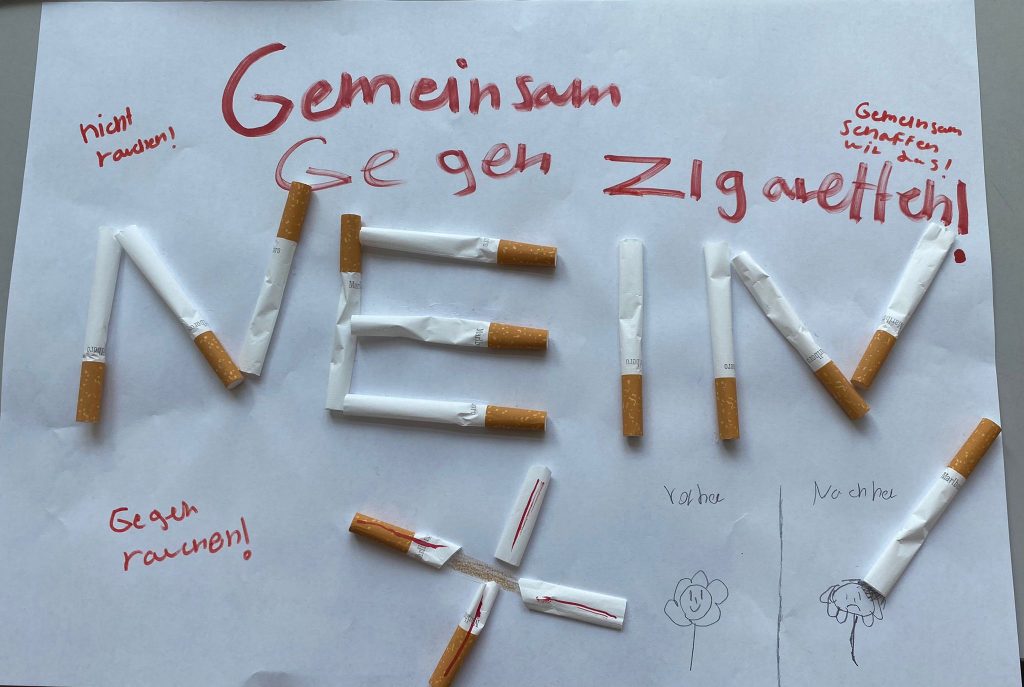 Gemeinsam
Gegen Zigaretten!
nicht
rauchen!
Gemeinsam
schaffen
wir das!
NEIN
Gegen
rauchen!
Vorher
Nachher